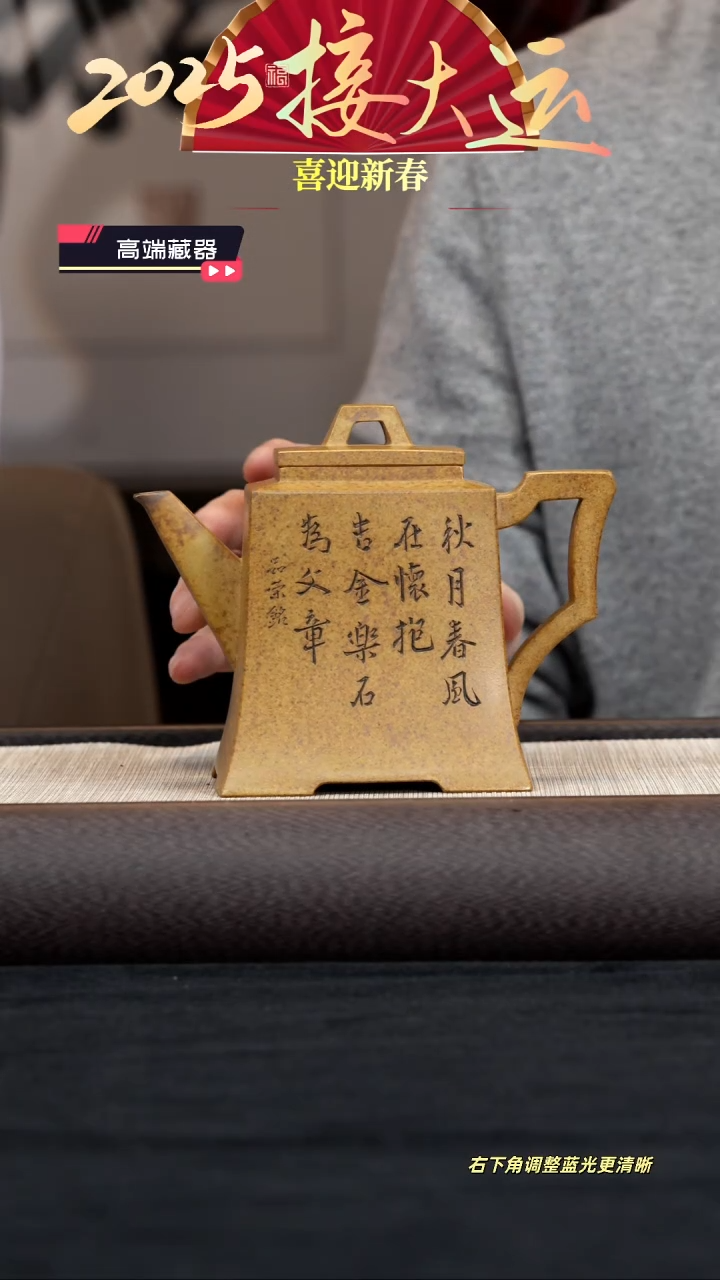 2025接大运
福
喜迎新春
高端藏器
秋月春風
在懷抱
吉金樂石
為文章
右下角调整蓝光更清晰